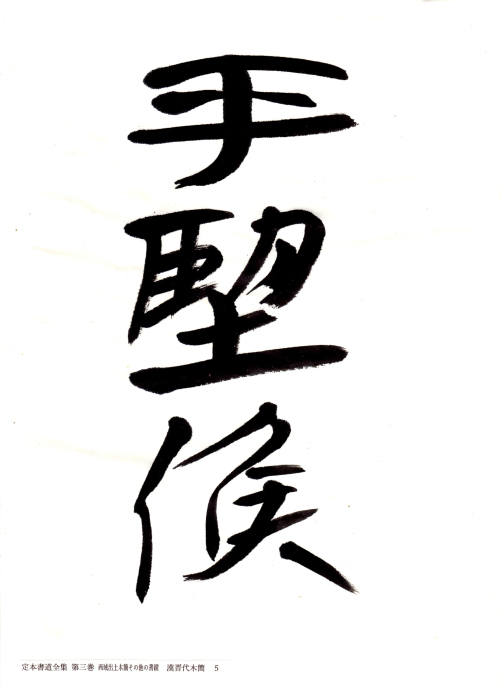 平
望
侯
定本書道全集 第三巻 西域出土木簡その他の書蹟 漢晋代木簡 5